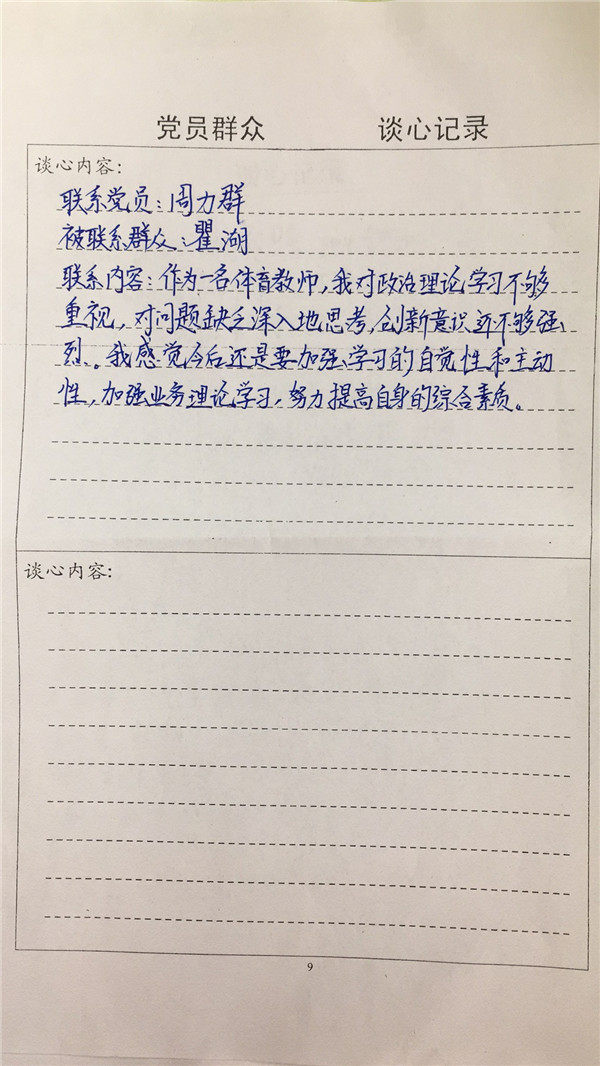 党员群众 谈心记录
谈心内容：
联系党员：周力群
被联系群众：瞿湖
联系内容：作为一名体育教师，我对政治理论学习不够
重视，对问题缺乏深入地思考，创新意识还不够强
烈。我感觉今后还是要加强学习的自觉性和主动
性，加强业务理论学习，努力提高自身的综合素质。
谈心内容：
9